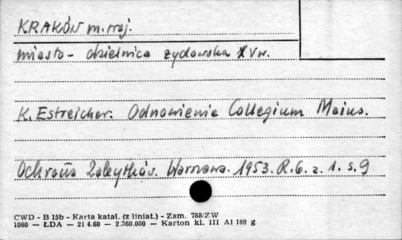 KRAKÓW m. woj.
miasto - dzielnica żydowska XV w.
K. Estreicher. Odnowienie Collegium Maius.
Ochrona Zabytków. Warszawa. 1953. R. 6. z. 1. s. 9
CWD - B 15b - Karta katal. (z liniat.) - Zam. 788/ZW
1060 — ŁDA — 21 4.60 — 2.360.000 — Karton kl. III A1 160 g